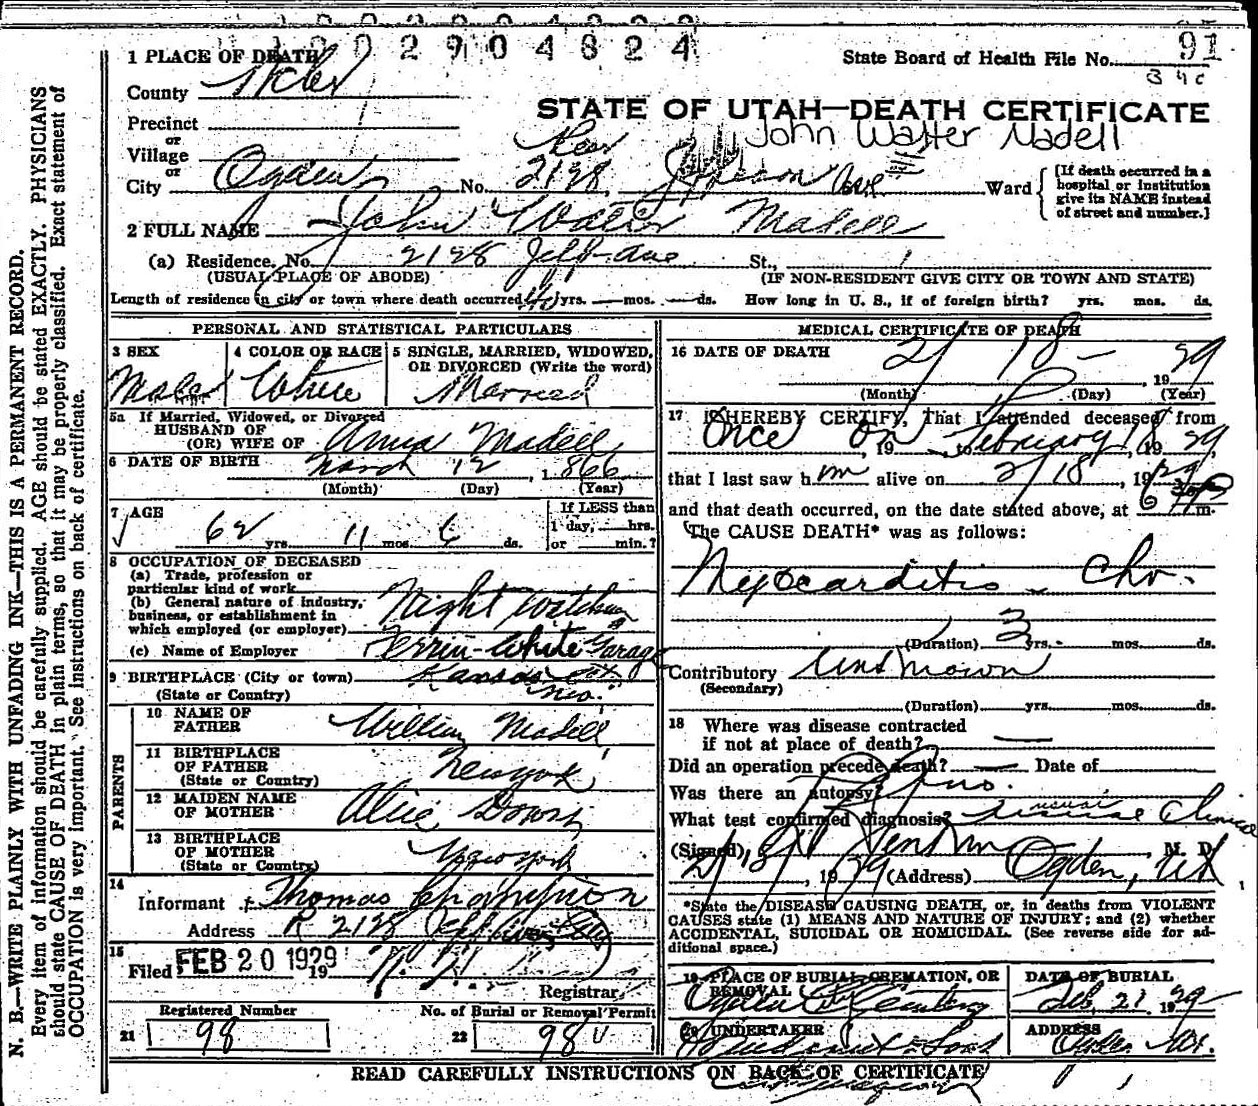 1 0 0 2 9 0 4 8 2 4
1 PLACE OF DEATH
State Board of Health File No. 91
County
STATE OF UTAH—DEATH CERTIFICATE
Precinct
John Walter Madell
or
Village
or
City Ogden No. 2128 Ave Ward
[If death occurred in a
hospital or institution
give its NAME instead
of street and number.]
2 FULL NAME John Walter Madell
(a) Residence, No. 2128 Jeff. Ave St.,
(USUAL PLACE OF ABODE) (IF NON-RESIDENT GIVE CITY OR TOWN AND STATE)
Length of residence in city or town where death occurred yrs. mos. ds. How long in U. S., if of foreign birth? yrs. mos. ds.
PERSONAL AND STATISTICAL PARTICULARS
3 SEX
Male
4 COLOR OR RACE
White
5 SINGLE, MARRIED, WIDOWED,
OR DIVORCED (Write the word)
Married
5a If Married, Widowed, or Divorced
HUSBAND OF
(OR) WIFE OF Anna Madell
6 DATE OF BIRTH March 12, 1866
(Month) (Day) (Year)
7 AGE
62 yrs. 11 mos. 6 ds.
If LESS than
1 day, hrs.
or min.?
8 OCCUPATION OF DECEASED
(a) Trade, profession or
particular kind of work
Night Watchman
(b) General nature of industry,
business, or establishment in
which employed (or employer)
(c) Name of Employer Perrin-White Garage
9 BIRTHPLACE (City or town) Kansas City
(State or Country) Mo.
PARENTS
10 NAME OF
FATHER William Madell
11 BIRTHPLACE
OF FATHER New York
(State or Country)
12 MAIDEN NAME
OF MOTHER Alice Downs
13 BIRTHPLACE
OF MOTHER New York
(State or Country)
14
Informant Thomas Champion
Address R 2128
15
Filed FEB 20 1929 19
Registrar.
Registered Number
21 98
No. of Burial or Removal Permit
22 98
MEDICAL CERTIFICATE OF DEATH
16 DATE OF DEATH 2/ 18 - , 19 29
(Month) (Day) (Year)
17 I HEREBY CERTIFY, That I attended deceased from
Once on , 19 , to February 18, 19 29,
that I last saw him alive on 2/18, 19 29
and that death occurred, on the date stated above, at 6 m.
The CAUSE DEATH* was as follows:
Myocarditis - Chr.
(Duration) 3 yrs. mos. ds.
Contributory Unknown
(Secondary)
(Duration) yrs. mos. ds.
18 Where was disease contracted
if not at place of death? —
Did an operation precede death? — Date of
Was there an autopsy? no.
What test confirmed diagnosis? usual Clinical
(Signed) M. D.
, 19 29 (Address) Ogden, Ut
*State the DISEASE CAUSING DEATH, or, in deaths from VIOLENT
CAUSES state (1) MEANS AND NATURE OF INJURY; and (2) whether
ACCIDENTAL, SUICIDAL OR HOMICIDAL. (See reverse side for ad-
ditional space.)
19 PLACE OF BURIAL, CREMATION, OR
REMOVAL
Ogden City Cemetery
DATE OF BURIAL
Feb. 21 1929
20 UNDERTAKER
& Sons
ADDRESS
Ogden Ut.
READ CAREFULLY INSTRUCTIONS ON BACK OF CERTIFICATE
N. B.—WRITE PLAINLY WITH UNFADING INK—THIS IS A PERMANENT RECORD.
Every item of information should be carefully supplied. AGE should be stated EXACTLY. PHYSICIANS
should state CAUSE OF DEATH in plain terms, so that it may be properly classified. Exact statement of
OCCUPATION is very important. See instructions on back of certificate.